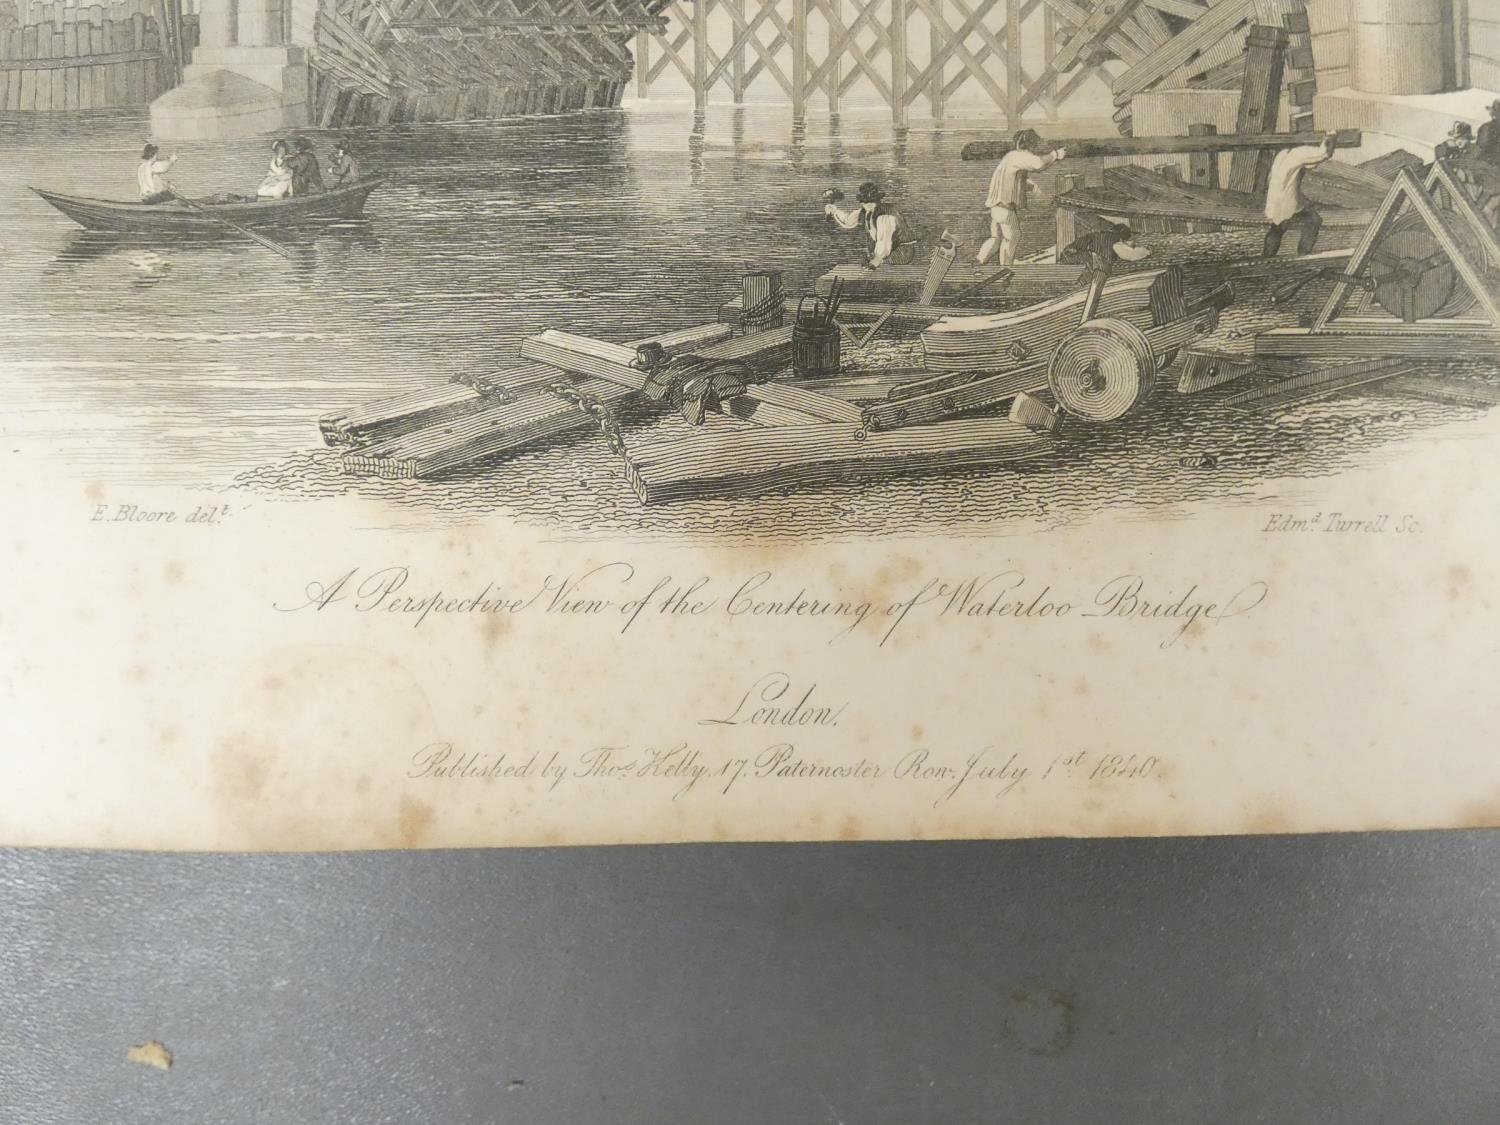 E. Bloore del.t
Edm.d Turrell Sc.
A Perspective View of the Centering of Waterloo Bridge.
London.
Published by Tho.s Kelly, 17, Paternoster Row, July 1st 1840.